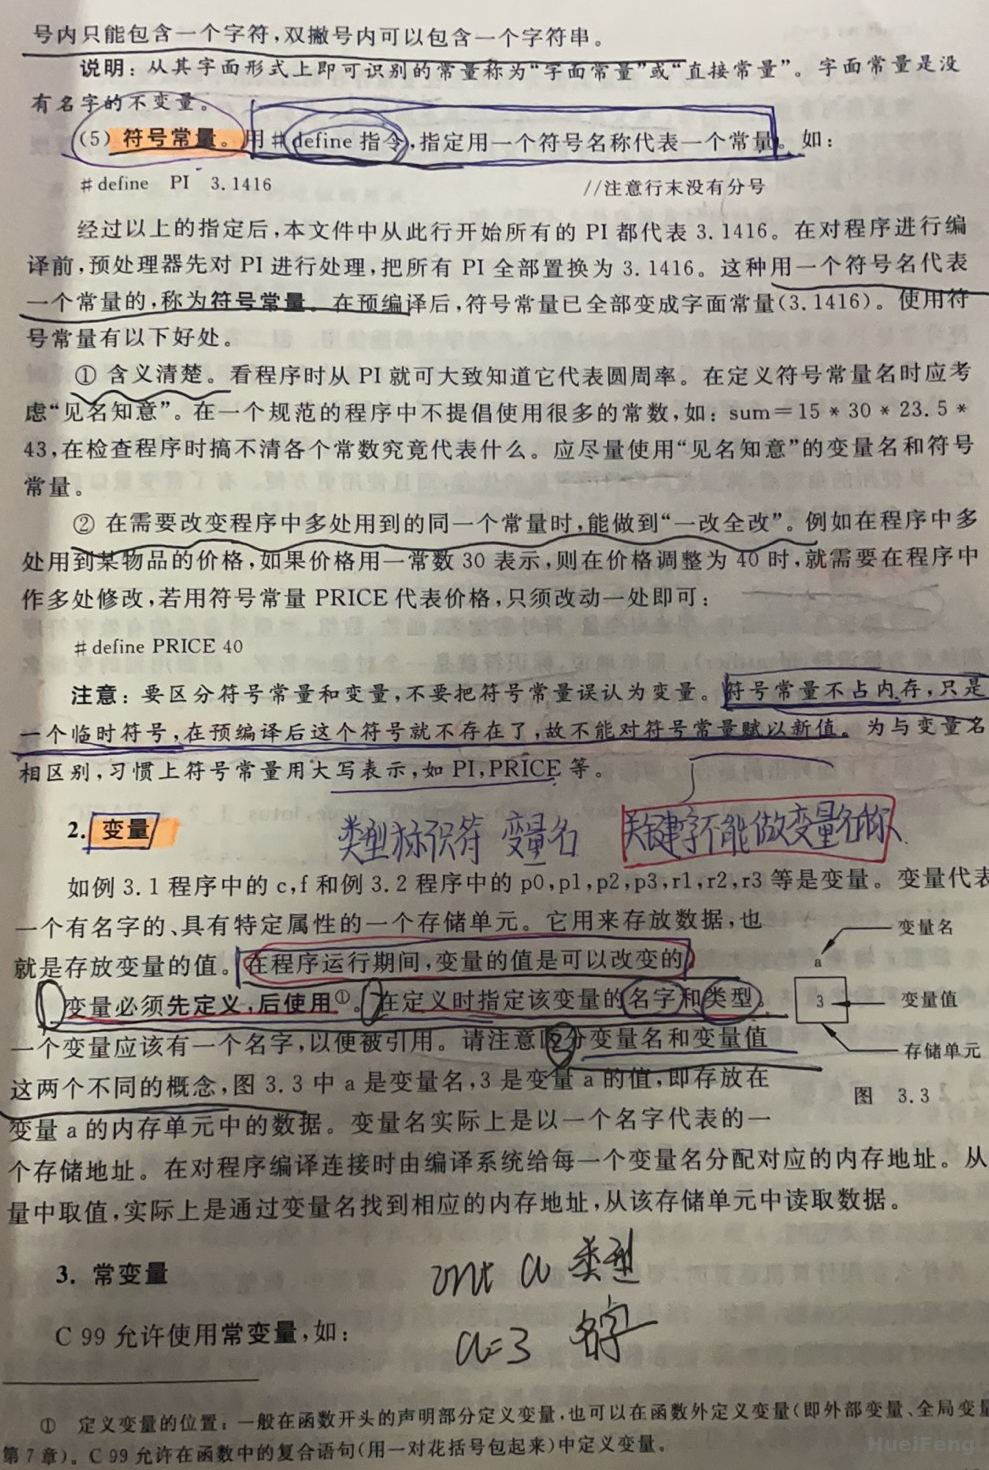 号内只能包含一个字符,双撇号内可以包含一个字符串。
说明:从其字面形式上即可识别的常量称为“字面常量”或“直接常量”。字面常量是没
有名字的不变量。
(5) 符号常量。用#define 指令,指定用一个符号名称代表一个常量。如:
#define PI 3.1416 //注意行末没有分号
经过以上的指定后,本文件中从此行开始所有的 PI 都代表 3.1416。在对程序进行编
译前,预处理器先对 PI 进行处理,把所有 PI 全部置换为 3.1416。这种用一个符号名代表
一个常量的,称为符号常量。在预编译后,符号常量已全部变成字面常量(3.1416)。使用符
号常量有以下好处。
① 含义清楚。看程序时从 PI 就可大致知道它代表圆周率。在定义符号常量名时应考
虑“见名知意”。在一个规范的程序中不提倡使用很多的常数,如:sum=15 * 30 * 23.5 *
43,在检查程序时搞不清各个常数究竟代表什么。应尽量使用“见名知意”的变量名和符号
常量。
② 在需要改变程序中多处用到的同一个常量时,能做到“一改全改”。例如在程序中多
处用到某物品的价格,如果价格用一常数 30 表示,则在价格调整为 40 时,就需要在程序中
作多处修改,若用符号常量 PRICE 代表价格,只须改动一处即可:
#define PRICE 40
注意:要区分符号常量和变量,不要把符号常量误认为变量。符号常量不占内存,只是
一个临时符号,在预编译后这个符号就不存在了,故不能对符号常量赋以新值。为与变量名
相区别,习惯上符号常量用大写表示,如 PI,PRICE 等。
2. 变量
类型标识符 变量名
关键字不能做变量名称
如例 3.1 程序中的 c,f 和例 3.2 程序中的 p0,p1,p2,p3,r1,r2,r3 等是变量。变量代表
一个有名字的、具有特定属性的一个存储单元。它用来存放数据,也
就是存放变量的值。在程序运行期间,变量的值是可以改变的。
变量必须先定义,后使用①。在定义时指定该变量的名字和类型。
一个变量应该有一个名字,以便被引用。请注意区分变量名和变量值
这两个不同的概念,图 3.3 中 a 是变量名,3 是变量 a 的值,即存放在
变量 a 的内存单元中的数据。变量名实际上是以一个名字代表的一
个存储地址。在对程序编译连接时由编译系统给每一个变量名分配对应的内存地址。从
量中取值,实际上是通过变量名找到相应的内存地址,从该存储单元中读取数据。
变量名
a
3
变量值
存储单元
图 3.3
3. 常变量
int a 类型
C 99 允许使用常变量,如:
a=3 名字
① 定义变量的位置:一般在函数开头的声明部分定义变量,也可以在函数外定义变量(即外部变量、全局变量
第 7 章)。C 99 允许在函数中的复合语句(用一对花括号包起来)中定义变量。
HueiFeng